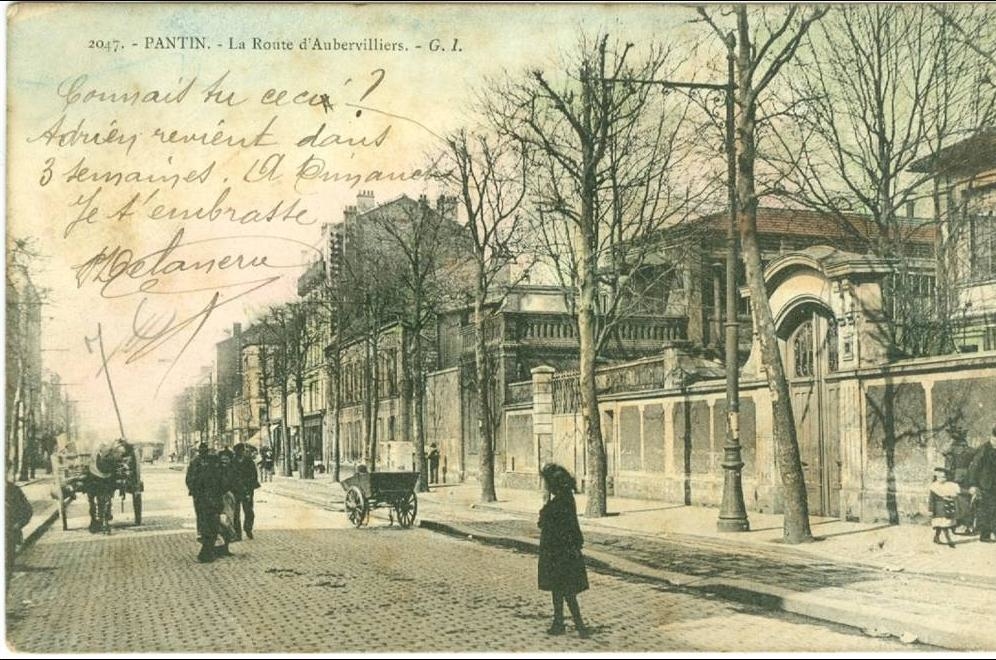 2047. - PANTIN. - La Route d'Aubervilliers. - G. I.
Connais tu ceci ?
Adrien revient dans
3 semaines. A Dimanche
Je t'embrasse